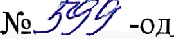 № 599 -од